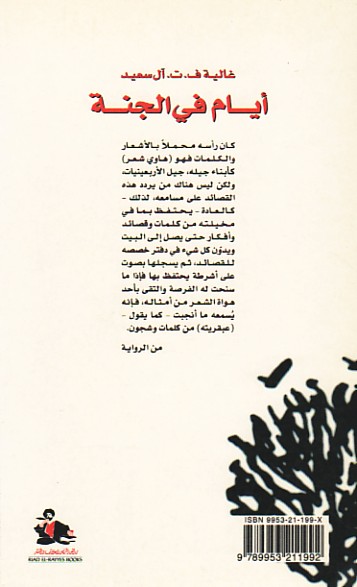 غالية ف. ت. آل سعيد
أيام في الجنة
كان رأسه محملاً بالأشعار
والكلمات فهو (هاوي شعر)
كأبناء جيله، جيل الأربعينيات،
ولكن ليس هناك من يردد هذه
القصائد على مسامعه، لذلك -
كالعادة - يحتفظ بما في
مخيلته من كلمات وقصائد
وأفكار حتى يصل إلى البيت
ويدوّن كل شيء في دفتر خصصه
للقصائد، ثم يسجلها بصوت
على أشرطة يحتفظ بها فإذا ما
سنحت له الفرصة والتقى بأحد
هواة الشعر من أمثاله، فإنه
يُسمعه ما أنجبت - كما يقول -
(عبقريته) من كلمات وشجون.
من الرواية
ISBN 9953-21-199-X
9 789953 211992
RIAD EL-RAYYES BOOKS